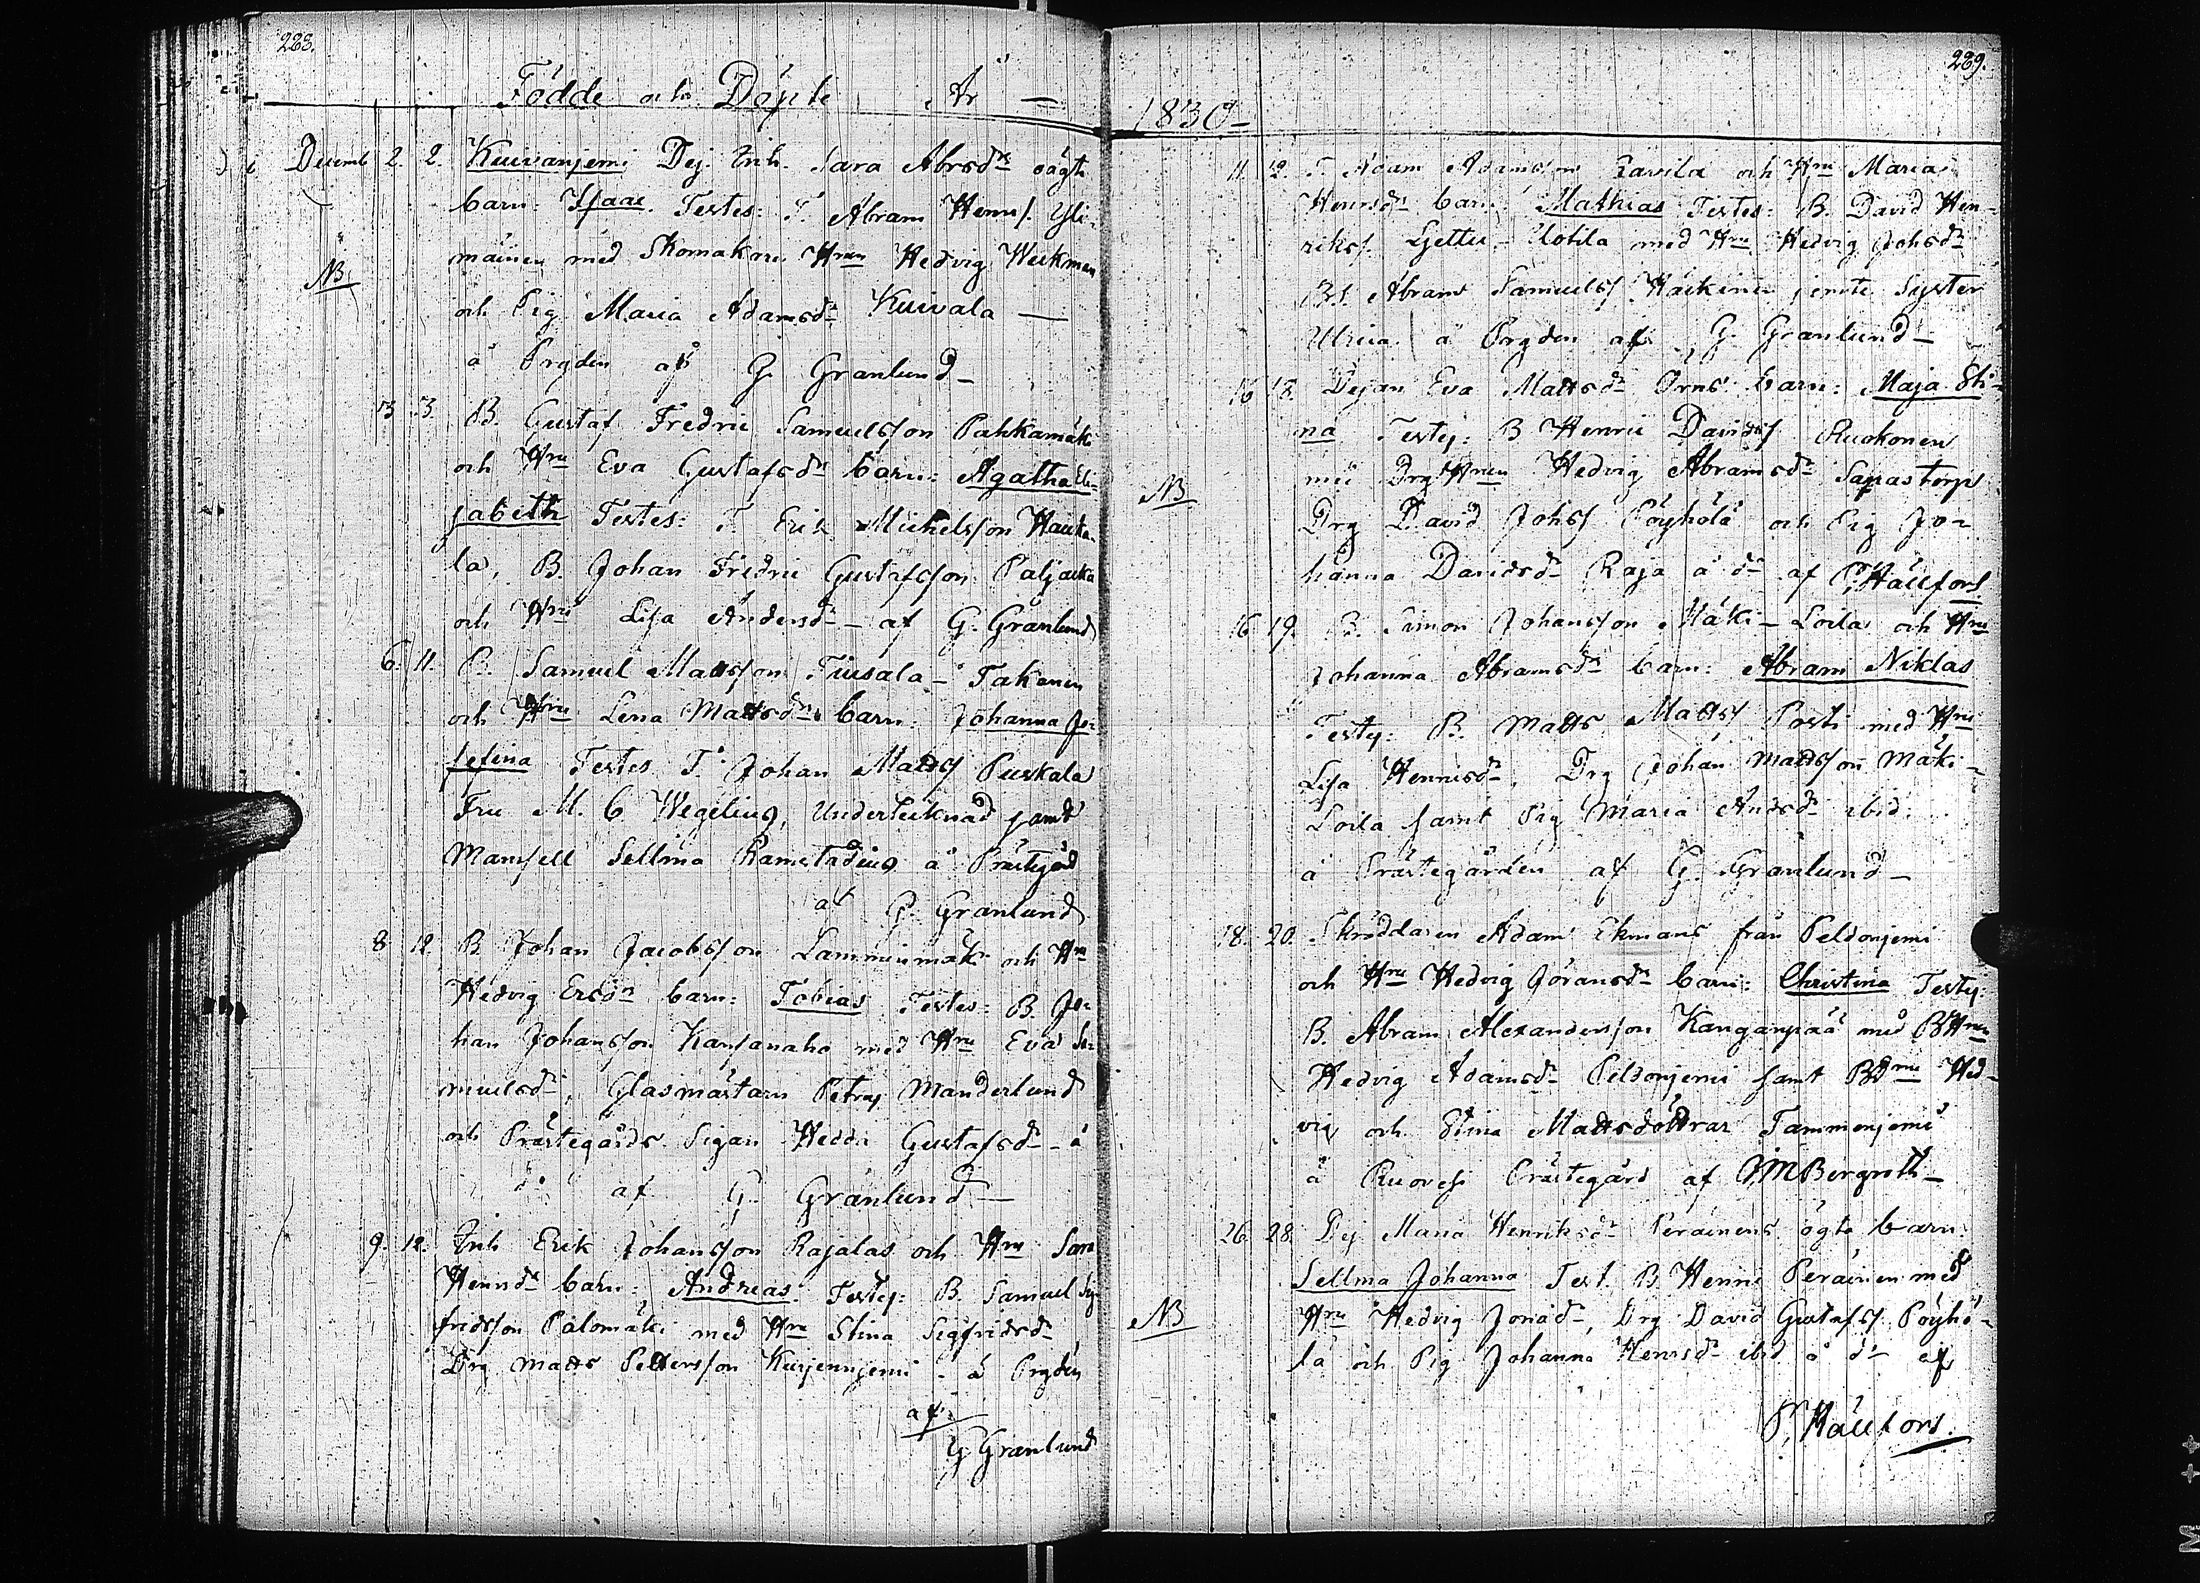 228.
Födde och Döpte År —
Decemb 2. 2. Kuivanjemi Dej. Inh. Sara Abrsdr oägte
barn: Isaac. Testes: T. Abram Henrs. Yli-
NB mäinen med Skomakare Hrun Hedvig Weckman
och Pig Maria Adamsdr Kuivala —
å Prgden af G. Granlund —
3. 3. B. Gustaf Fredric Samuelsson Pahkamäki
och Hru Eva Gustafsdr barn: Agatha Eli-
sabeth Testes: T. Erik Michelsson Hauka-
la, B. Johan Fredric Gustafsson Paljacka
och Hru Lisa Andersdr — af G. Granlund
6. 11. B. Samuel Mattsson Tiusala — Takanen
och Hru Lena Mattsdrs barn: Johanna Jo-
sefina Testes T. Johan Matts Puskala
Fru M. C Wegelius, Undertecknad samt
Mamsell Sellma Ramstadius å Prästegård
af G. Granlund
8. 12. B. Johan Jacobsson Lamminmäki och Hru
Hedvig Ersdr barn: Tobias Testes: B. Jo-
han Johansson Kansanaho med Hru Eva Sa-
muelsdr, Glasmästarn Petrus Manderlund
och Prästegårds Pigan Hedda Gustafsdr — å
do af G. Granlund —
9. 12. Inh Erik Johansson Rajalas och Hru Sara
Henrsdr barn: Andreas. Testes: B. Samuel Sig-
fridsson Palomäki med Hru Stina Sigfridsdr
Drg Matts Pettersson Kurjennjemi — å Prgden
af
G Granlund
229.
1830 —
11. 12. T. Adam Adamsson Ravila och Hru Maria
Henrsdr barn: Mathias Testes: B. David Hen-
riks. Uotila med Hru Hedvig Johsdr
B.S. Abram Samuels Häikinen jemte Syster
Ulrica å Prgden af G. Granlund —
16 18. Dejan Eva Mattsdr Orns barn: Maja Sti-
na Testes: B Henric Davids Ruokonen
NB med Drg Hrun Hedvig Abramsdr Saprastorp
Drg David Johss Pöyhölä och Pig Jo-
hanna Davidsdr Raja å do af P. Hällfors
16 19. B. Simon Johansson Mäki — Loila och Hru
Johanna Abramsdr barn: Abram Niklas
Testes: B. Matts Matts Posti med Hru
Lisa Henricsdr, Drg Johan Mattsson Mäki-
Loila samt Pig Maria Andsdr ibid.
å Prästegården af G. Granlund —
18. 20. Skräddaren Adam Ekmans från Peldonjemi
och Hru Hedvig Göransdr barn: Christina Testes:
B. Abram Alexandersson Kanganpää med B Hrun
Hedvig Adamsdr Peldonjemi samt BDrne Hed-
vig och Stina Mattsdöttrar Tammenjemi
å Ruovesi Prästegård af J. M Bergroth —
26. 28. Pig Maria Henriksdr Peräinens ögte barn
Sellma Johanna Test. B Henric Peräinen med
NB Hru Hedvig Jonasdr, Drg David Gustafs Pöyhö-
lä och Pig Johanna Henrsdr ibid å do af
P. Hällfors.